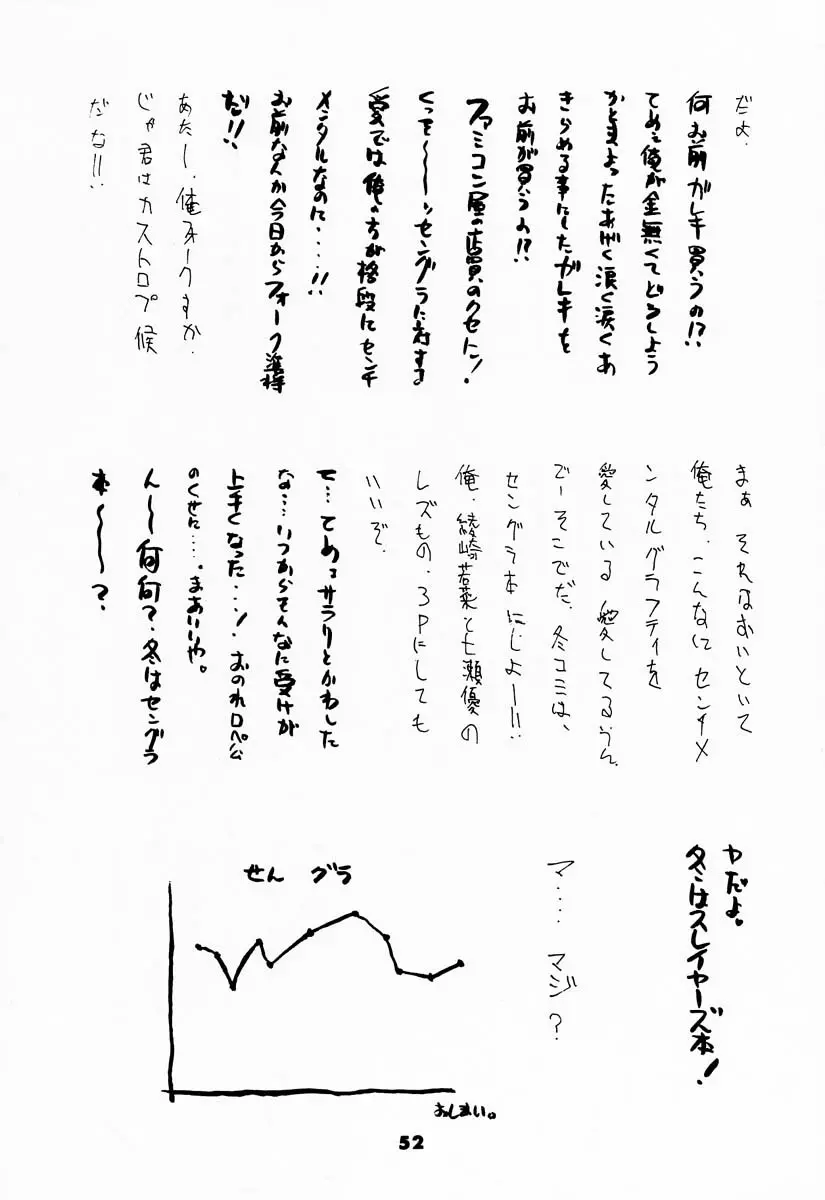 だよ.
何お前ガレキ買うの!?
てめェ俺が金無くてどうしよう
かとまよったあげく泪く涙くあ
きらめる事にしたガレキを
お前が買うの!?
ファミコン屋の店員のクセに!
くっそ〜〜〜ッセングラに対する
愛では俺の方が格段にセンチ
メンタルなのに・・・・!!
お前なんか今日からフォーク準将
だ!!
あたー、俺フォークすか.
じゃ君はカストロプ候
だな!!
まぁ それはおいといて
俺たち、こんなに センチメ
ンタルグラフティを
愛している 愛してるうん.
でーそこでだ、冬コミは、
セングラ本にしよー!!
俺、綾崎若菜と七瀬優の
レズもの.3Pにしても
いいぞ.
て…てめェサラリとかわした
な…いつからそんなに受けが
上手くなった…! おのれロペ公
のくせに….まあいいや。
ん〜何何?.冬はセングラ
本〜〜〜?.
ヤだよ。
冬はスレイヤーズ本!
マ…. マジ?
せん グラ
おしまい。
52